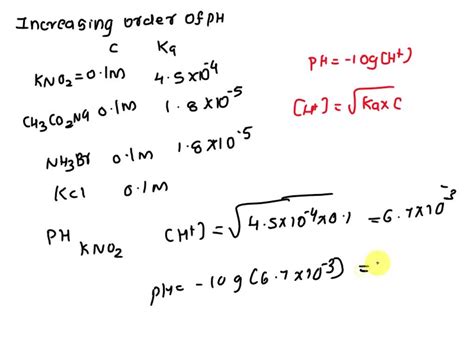 Increasing order of PH
C Ka
KNO2 = 0.1M 4.5×10⁻⁴
CH3CO2Na 0.1M 1.8×10⁻⁵
NH3Br 0.1M 1.8×10⁻⁵
KCl 0.1M
PH = -log[H⁺]
[H⁺] = √Ka×C
PH KNO2 [H⁺] = √4.5×10⁻⁴×0.1 = 6.7×10⁻³
PH = -log(6.7×10⁻³) =